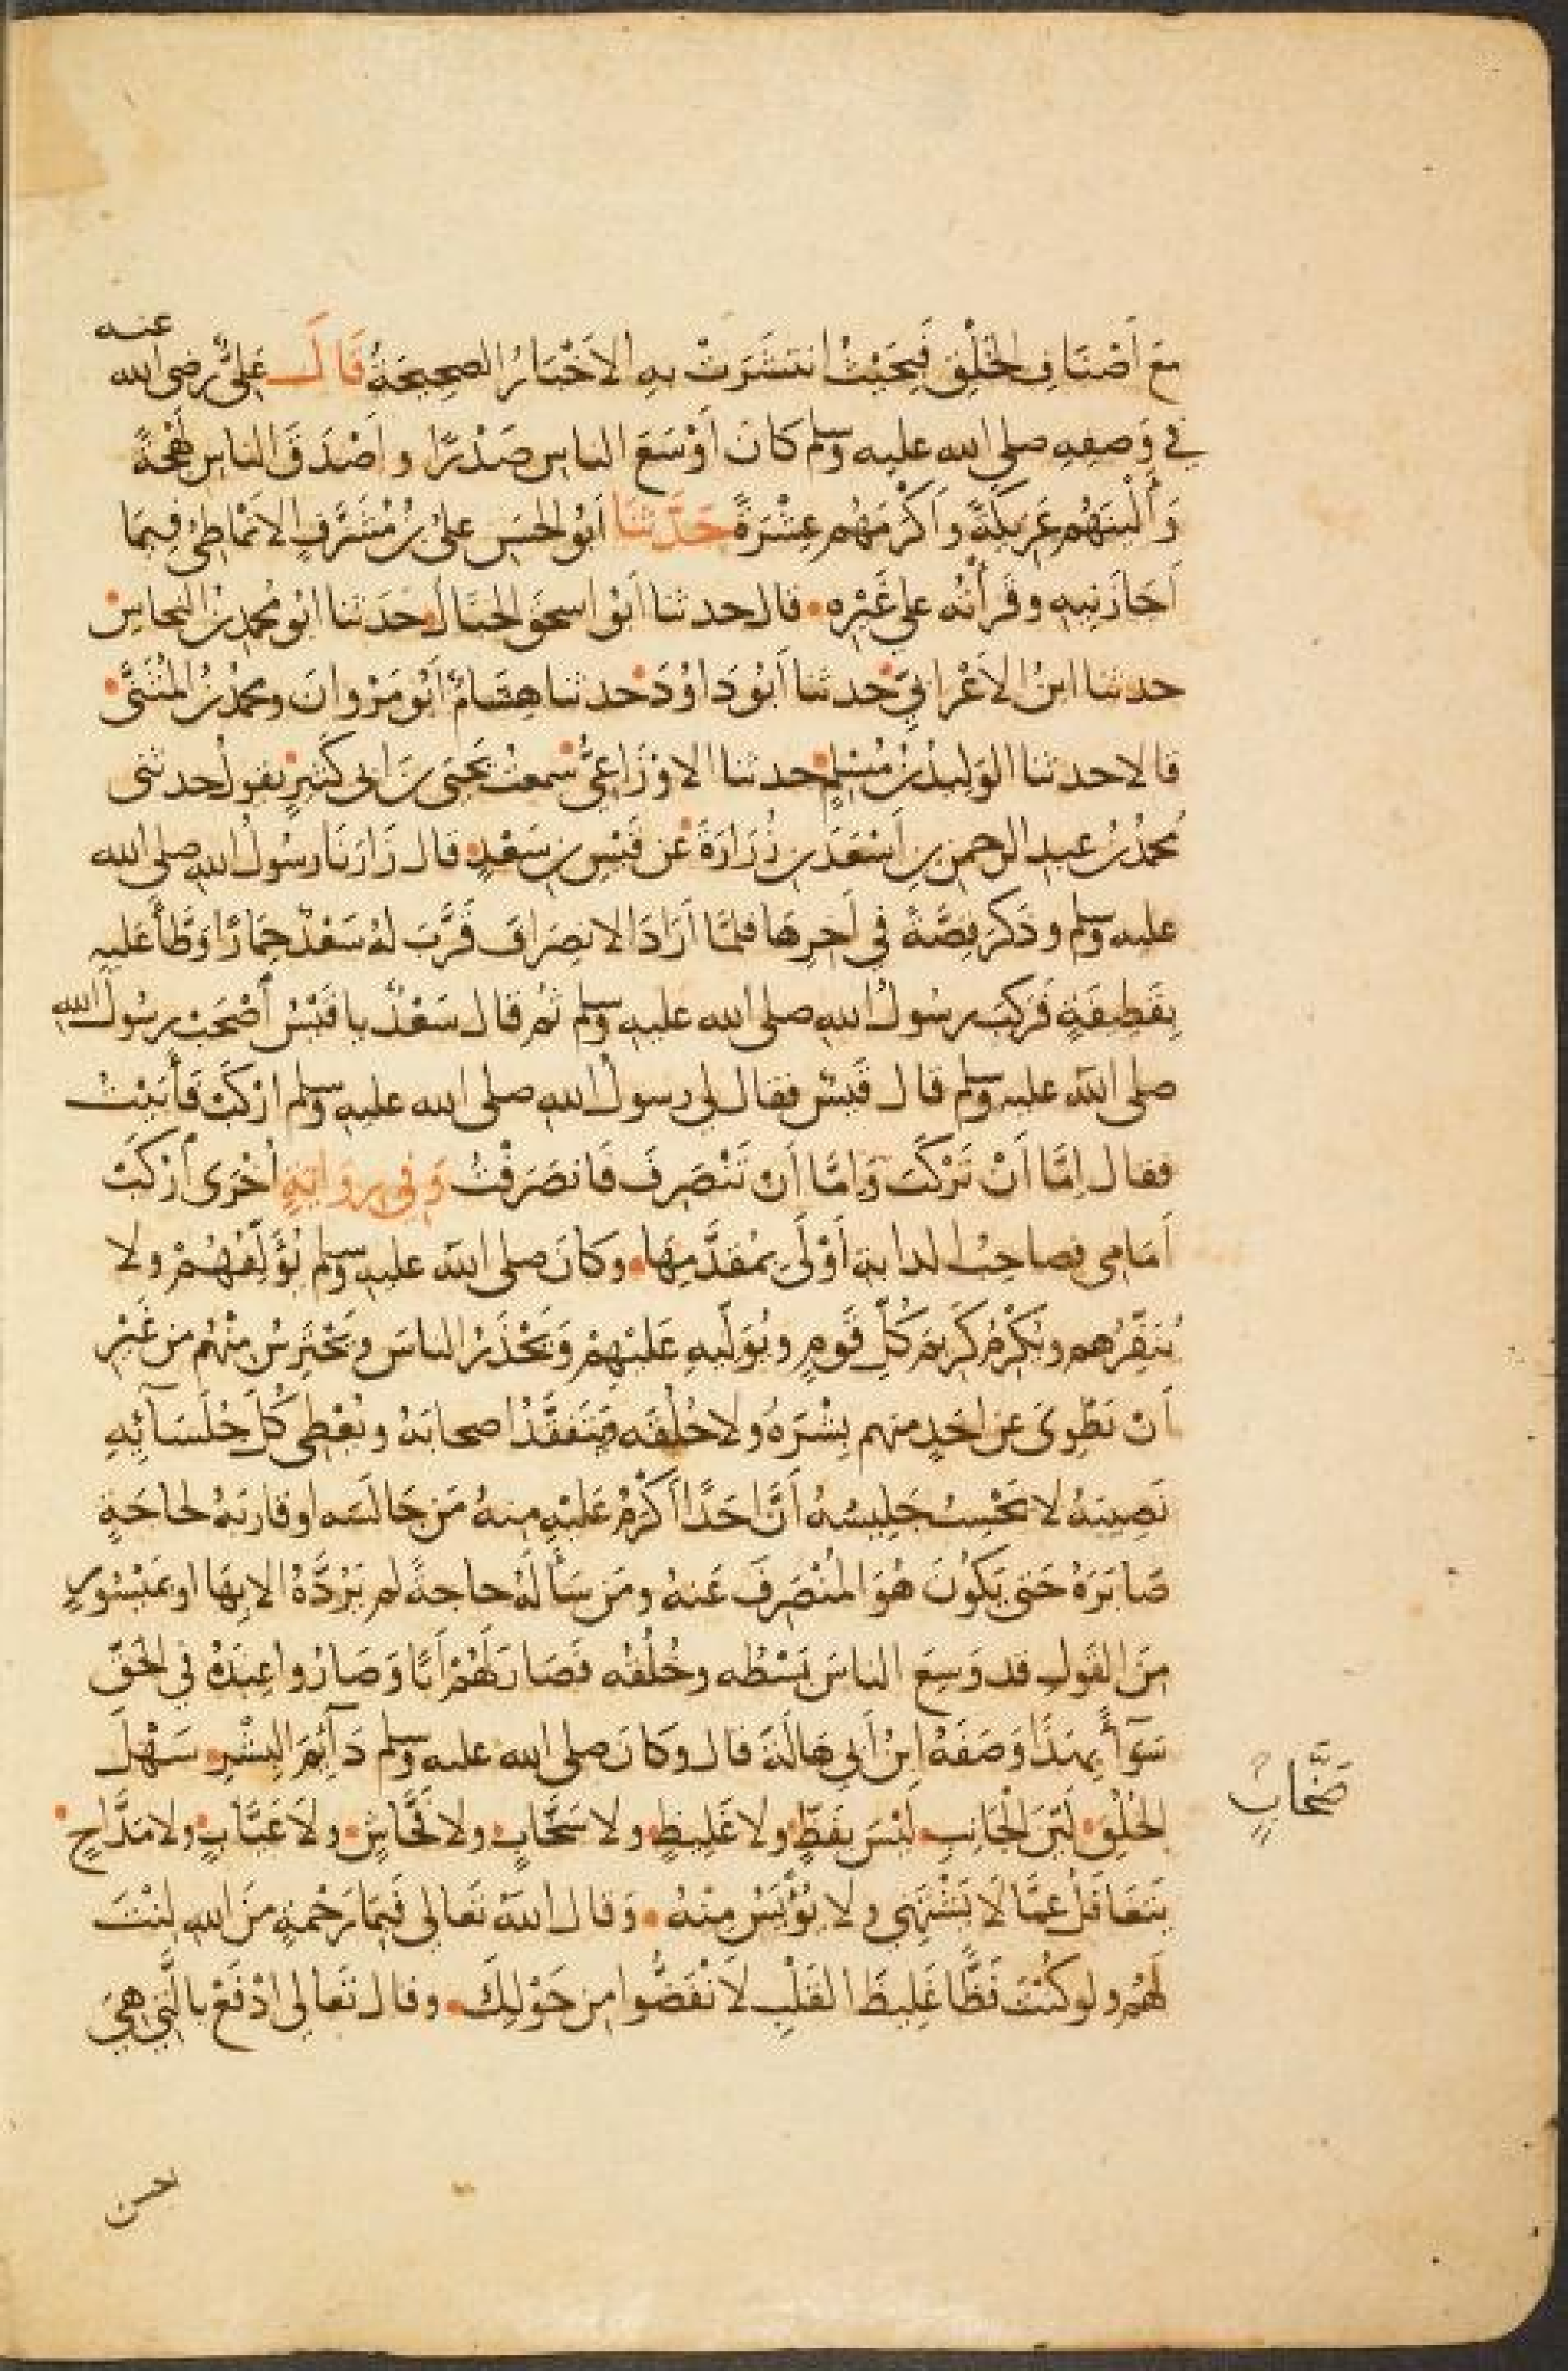 مَعَ أَصْنَافِ الخَلْقِ فَبِحَيْثُ انتَشَرَتْ بِهِ الأَخْبَارُ الصَحِيحَةُ قَالَ عَلِيٌّ رضى الله عنه
في وَصفِهِ صلى الله عليه وسلم كَانَ أَوْسَعَ الناسِ صَدْرًا وأَصْدَقَ الناسِ لَهْجَةً
وَأَلْيَنَهُم عَرِيكَةً وأَكْرَمَهُم عِشْرَةً حَدَّثَنَا أَبُو الحسَنِ عليُّ بنُ مُشَرَّفٍ الأنمَاطِيُّ فِيمَا
أَجَازَنِيهِ وقَرَأْتُه على غَيْرِهِ قال حدثنا أبُو اسحقَ الحبَّالُ حَدثنا أبُو محمدِ بنُ النحاسِ
حدثنا ابنُ الأَعْرَابيِّ حدثنا أَبُو دَاوُدَ حدثنا هِشَامٌ أَبُو مَرْوانَ ومحمدُ بنُ المُثَنَّى
قالا حدثنا الوَلِيدُ بنُ مُسْلِمٍ حدثنا الأوْزَاعِيُّ سمعتُ يَحْيَى بنَ ابى كَثِيرٍ يقولُ حدثنى
محمدُ بنُ عبدِ الرحمنِ بنِ أَسْعَدَ بنِ زُرَارَةَ عن قَيْسِ بنِ سَعْدٍ قال زَارَنَا رسُولُ اللهِ صلى الله
عليه وسلم وذَكَرَ قِصَّةً في آخِرِهَا فلمَّا أَرَادَ الانصِرَافَ قَرَّبَ لهُ سَعْدٌ حِمَارًا وَطَّأَ عَليهِ
بِقَطِيفَةٍ فَرَكِبَ رسُولُ اللهِ صلى الله عليهِ وسلم ثُمَّ قال سَعْدٌ يا قَيْسُ أصْحَبْ رسُولَ اللهِ
صلى اللهُ عليه وسلم قال قَيْسٌ فقال لِي رسولُ اللهِ صلى الله عليهِ وسلم ارْكَبْ فَأَبَيْتُ
فقال إِمَّا أَنْ تَرْكَبَ وَإِمَّا أَنْ تَنْصَرِفَ فَانصَرَفْتُ وَفي رِوَايَةٍ أُخْرَى أرْكَبْ
أَمَامِى فصاحِبُ الدابةِ أَوْلَى بِمُقَدَّمِهَا وكَانَ صلى اللهُ عليهِ وسلم يُؤَلِّفُهُمْ ولا
يُنَفِّرُهم ويُكْرِمُ كَرِيمَ كلِّ قَومٍ ويُوَلِّيهِ عَلَيْهِمْ وَيَحْذَرُ الناسَ ويَحْتَرِسُ مِنْهُم من غَيْرِ
أنْ يَطْوِىَ عن احَدٍ منهم بِشْرَهُ ولا خُلُقَه يَتَفَقَّدُ أصحابَهُ ويُعْطِى كُلَّ جُلَسَائِهِ
نَصِيبَهُ لا يَحْسِبُ جَلِيسُهُ أَنَّ احَدًا أَكْرَمُ عَلَيْهِ مِنهُ مَن جَالَسَه او قارَبَهُ لحاجَةٍ
صَابَرَهُ حَتى يَكُونَ هُوَ المُنْصَرِفَ عَنهُ ومَن سَأَلهُ حاجةً لم يَرُدَّهُ الا بِهَا او بمَيْسُورٍ
مِنَ القَولِ قد وَسِعَ الناسَ بَسْطُه وخُلُقُه فَصَارَ لَهُمْ أَبًا وَصَارُوا عِندَهُ في الحَقِّ
سَوَآءً بِهذَا وَصَفَهُ ابنُ أَبِي هَالَةَ قال وكَانَ صلى الله عليه وسلم دَآئِمَ البِشْرِ سَهْلَ
الخُلُقِ لَيِّنَ الجَانِبِ لَيْسَ بفَظٍّ ولا غَلِيظٍ ولا سَخَّابٍ ولا فَحَّاشٍ ولا عَيَّابٍ ولا مَدَّاحٍ
صَخَّابٍ
يَتَغَافَلُ عمَّا لَا يَشْتَهِي ولا يُؤْيَسُ مِنْهُ وَقال اللهُ تَعَالى فَبِمَا رَحْمَةٍ مِنَ اللهِ لِنْتَ
لَهُم ولو كُنْتَ فَظًّا غَلِيظَ القَلْبِ لَانْفَضُّوا مِن حَوْلِكَ وقال تَعَالى ادْفَعْ بالَّتِي هِيَ